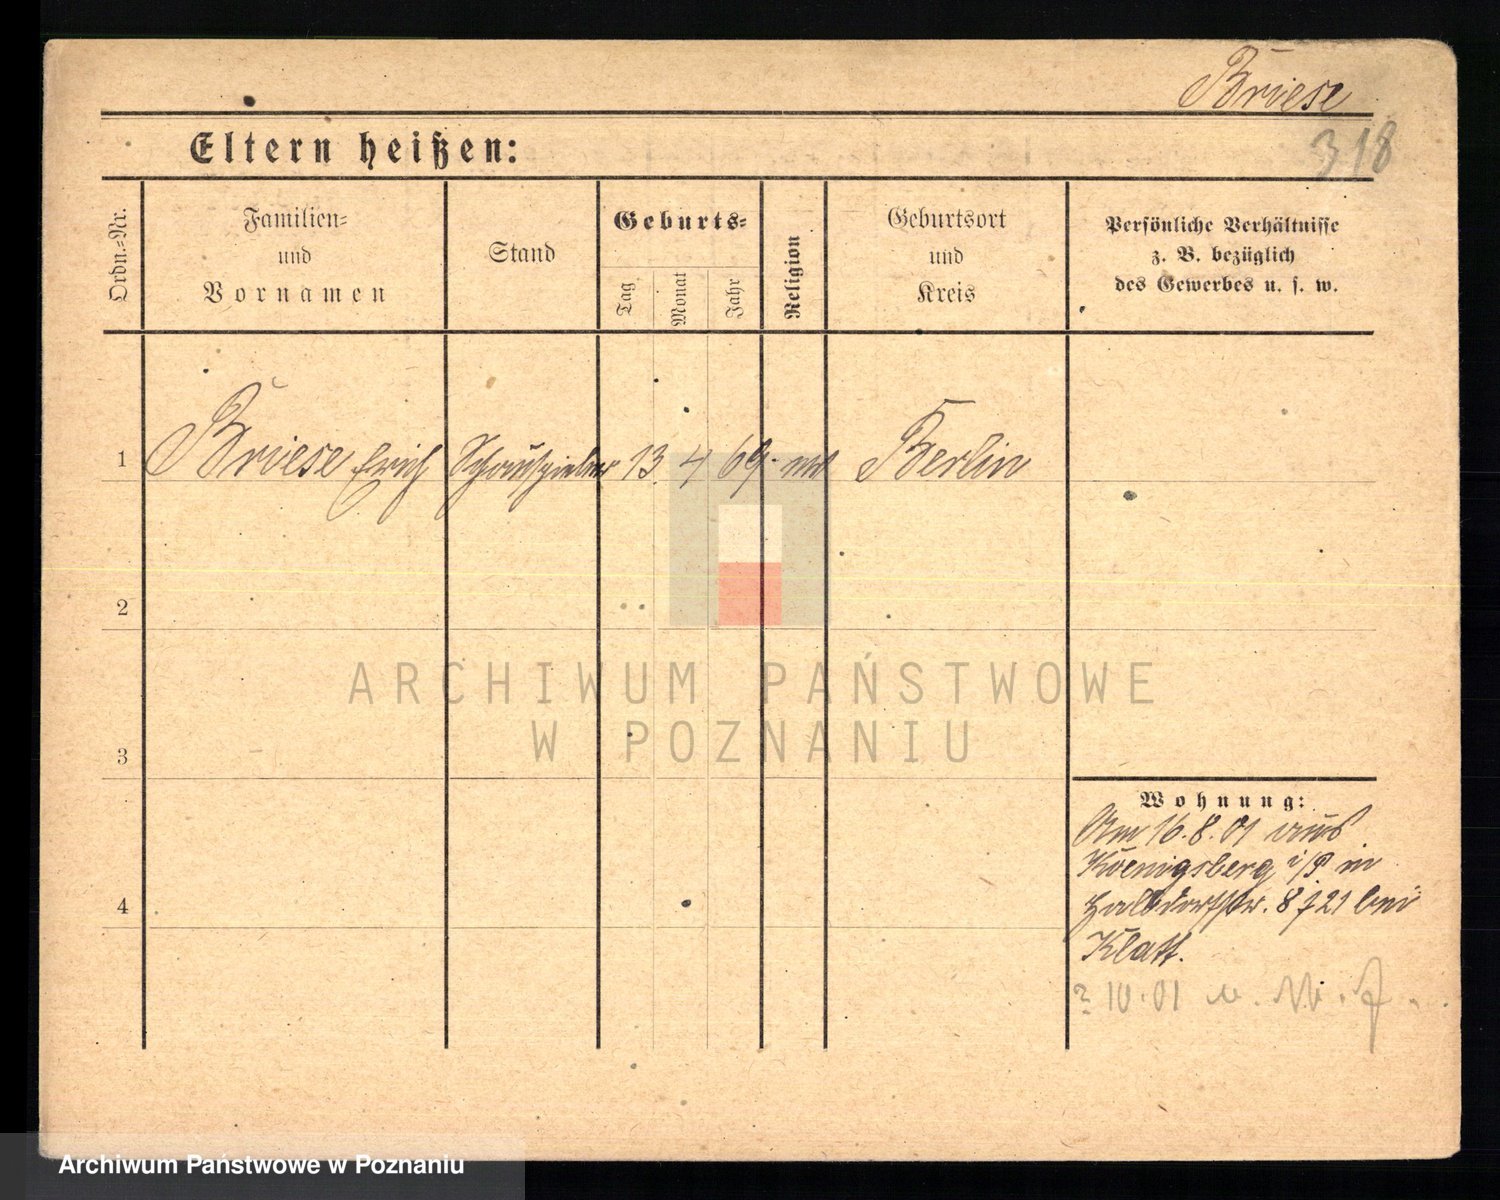 Briese
318
Eltern heißen:
Ordn.=Nr.
Familien=
und
Vornamen
Stand
Geburts=
Tag
Monat
Jahr
Religion
Geburtsort
und
Kreis
Persönliche Verhältnisse
z. B. bezüglich
des Gewerbes u. s. w.
1 Briese Erich Schauspieler 13. 4 69. Berlin
2
3
4
Wohnung:
Am 16.8.01 aus
Koenigsberg i/P in
Halbdorfstr. 8 21 bei
Klatt.
10.01
ARCHIWUM PAŃSTWOWE
W POZNANIU
Archiwum Państwowe w Poznaniu